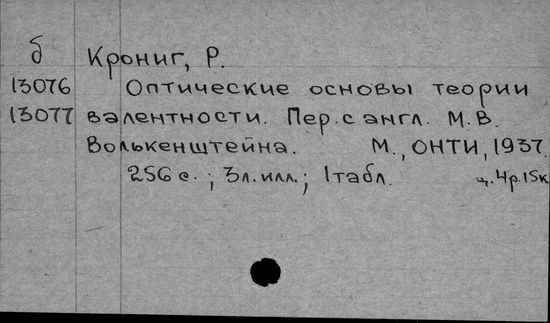 б Крониг, Р.
13076 Оптические основы теории
13077 валентности. Пер. с англ. М. В.
Волькенштейна. М., ОНТИ, 1937.
256 с.; 3 л. илл.; 1 табл. ц. 4р. 15к